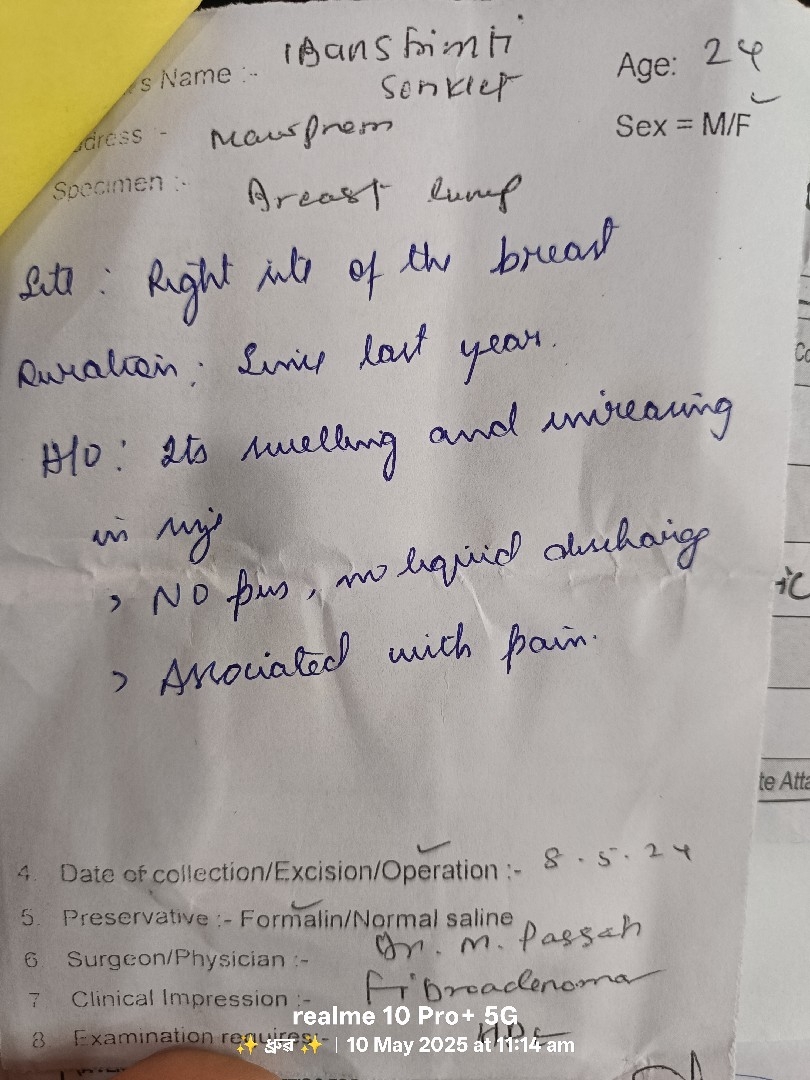 s Name :- iBanshimti
Sonklet
Age: 24
dress :- Mawprem
Sex = M/F
Specimen :- Breast lump
Site : Right site of the breast
Duration : Since last year.
H/O : Its swelling and increasing
in size
> NO pus, no liquid discharge
> Associated with pain.
te Atta
4. Date of collection/Excision/Operation :- 8.5.24
5. Preservative :- Formalin/Normal saline
6 Surgeon/Physician :- Dr. M. Passah
7 Clinical Impression :- Fibroadenoma
realme 10 Pro+ 5G
8 Examination requires :- HPE
10 May 2025 at 11:14 am